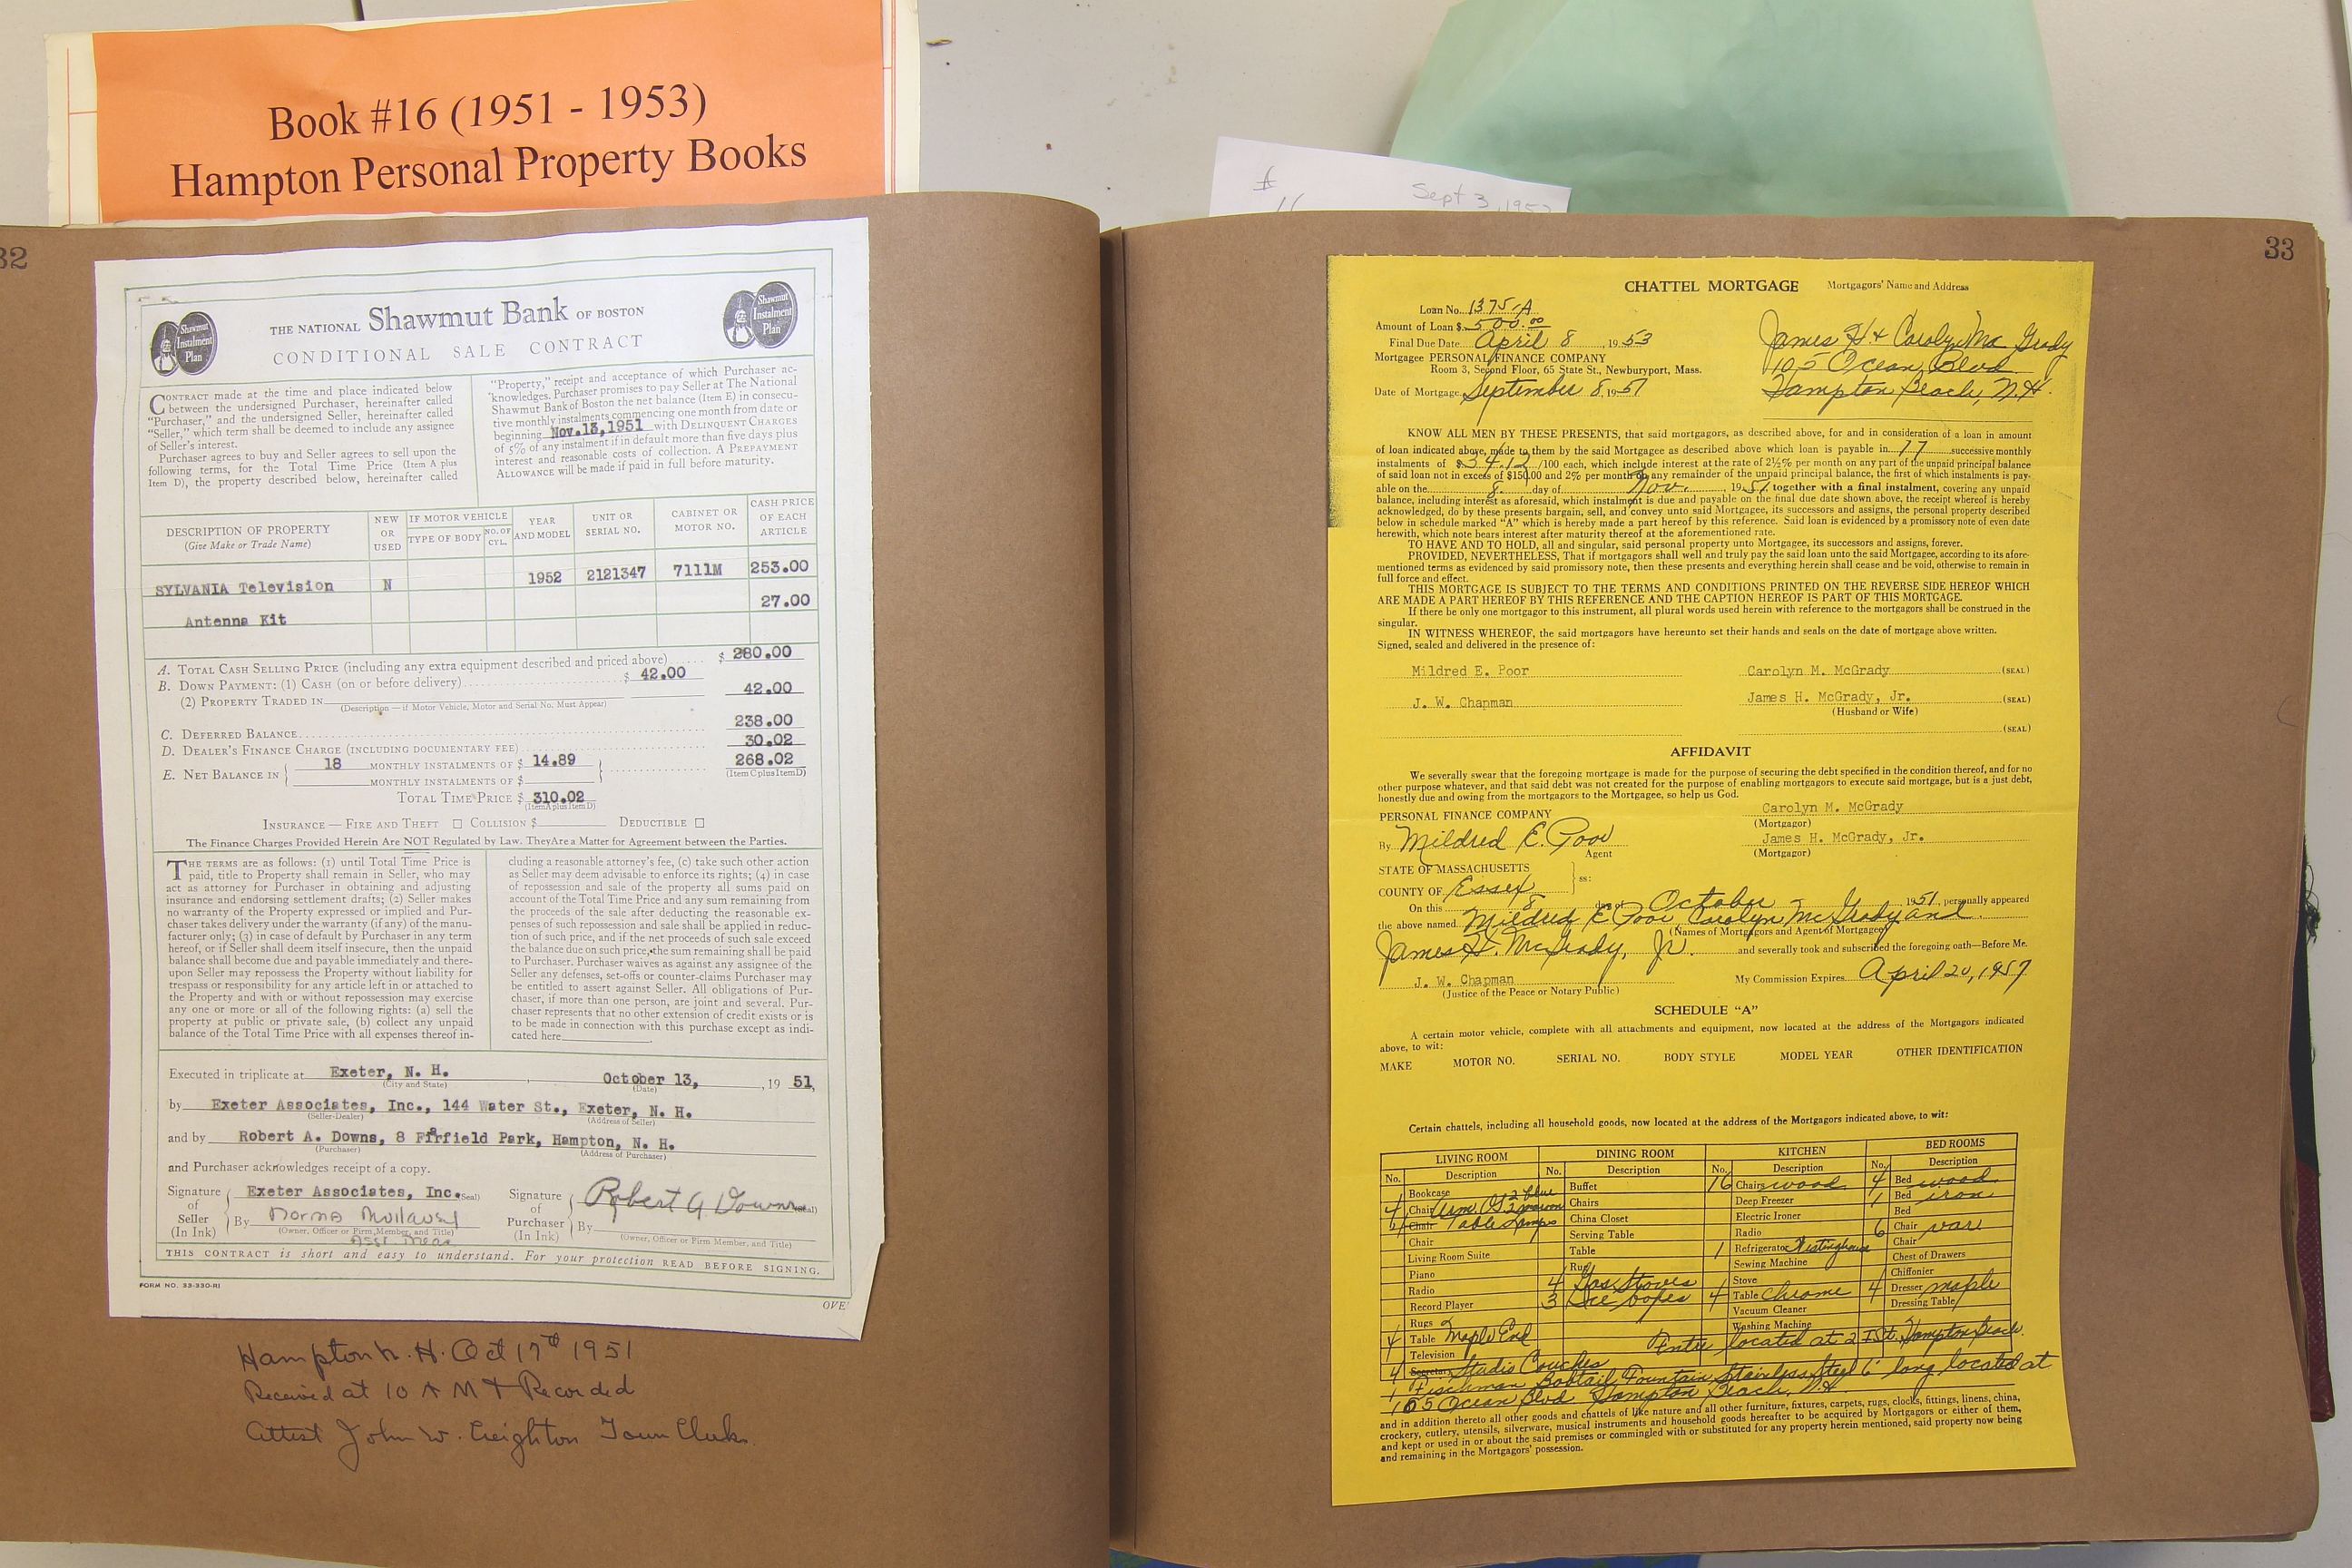 Book #16 (1951 - 1953)
Hampton Personal Property Books
Sept 3, 1952
32
Shawmut
Instalment
Plan
THE NATIONAL Shawmut Bank OF BOSTON
CONDITIONAL SALE CONTRACT
Shawmut
Instalment
Plan
CONTRACT made at the time and place indicated below
between the undersigned Purchaser, hereinafter called
"Purchaser," and the undersigned Seller, hereinafter called
"Seller," which term shall be deemed to include any assignee
of Seller's interest.
Purchaser agrees to buy and Seller agrees to sell upon the
following terms, for the Total Time Price (Item A plus
Item D), the property described below, hereinafter called
"Property," receipt and acceptance of which Purchaser ac-
knowledges. Purchaser promises to pay Seller at The National
Shawmut Bank of Boston the net balance (Item E) in consecu-
tive monthly instalments commencing one month from date or
beginning Nov.13,1951 with DELINQUENT CHARGES
of 5% of any instalment if in default more than five days plus
interest and reasonable costs of collection. A PREPAYMENT
ALLOWANCE will be made if paid in full before maturity.
DESCRIPTION OF PROPERTY
(Give Make or Trade Name)
NEW
OR
USED
IF MOTOR VEHICLE
TYPE OF BODY
NO. OF
CYL.
YEAR
AND MODEL
UNIT OR
SERIAL NO.
CABINET OR
MOTOR NO.
CASH PRICE
OF EACH
ARTICLE
SYLVANIA Television N 1952 2121347 7111M 253.00
Antenna Kit 27.00
A. TOTAL CASH SELLING PRICE (including any extra equipment described and priced above) $ 280.00
B. DOWN PAYMENT: (1) CASH (on or before delivery) $ 42.00
(2) PROPERTY TRADED IN 42.00
(Description — if Motor Vehicle, Motor and Serial No. Must Appear)
C. DEFERRED BALANCE 238.00
D. DEALER'S FINANCE CHARGE (INCLUDING DOCUMENTARY FEE) 30.02
E. NET BALANCE IN 18 MONTHLY INSTALMENTS OF $ 14.89 268.02
MONTHLY INSTALMENTS OF $ (Item C plus Item D)
TOTAL TIME PRICE $ 310.02
(Item A plus Item D)
INSURANCE — FIRE AND THEFT □ COLLISION $ DEDUCTIBLE □
The Finance Charges Provided Herein Are NOT Regulated by Law. They Are a Matter for Agreement between the Parties.
THE TERMS are as follows: (1) until Total Time Price is
paid, title to Property shall remain in Seller, who may
act as attorney for Purchaser in obtaining and adjusting
insurance and endorsing settlement drafts; (2) Seller makes
no warranty of the Property expressed or implied and Pur-
chaser takes delivery under the warranty (if any) of the manu-
facturer only; (3) in case of default by Purchaser in any term
hereof, or if Seller shall deem itself insecure, then the unpaid
balance shall become due and payable immediately and there-
upon Seller may repossess the Property without liability for
trespass or responsibility for any article left in or attached to
the Property and with or without repossession may exercise
any one or more or all of the following rights: (a) sell the
property at public or private sale, (b) collect any unpaid
balance of the Total Time Price with all expenses thereof in-
cluding a reasonable attorney's fee, (c) take such other action
as Seller may deem advisable to enforce its rights; (4) in case
of repossession and sale of the property all sums paid on
account of the Total Time Price and any sum remaining from
the proceeds of the sale after deducting the reasonable ex-
penses of such repossession and sale shall be applied in reduc-
tion of such price, and if the net proceeds of such sale exceed
the balance due on such price, the sum remaining shall be paid
to Purchaser. Purchaser waives as against any assignee of the
Seller any defenses, set-offs or counter-claims Purchaser may
be entitled to assert against Seller. All obligations of Pur-
chaser, if more than one person, are joint and several. Pur-
chaser represents that no other extension of credit exists or is
to be made in connection with this purchase except as indi-
cated here
Executed in triplicate at Exeter, N. H. October 13, , 19 51,
(City and State) (Date)
by Exeter Associates, Inc., 144 Water St., Exeter, N. H.
(Seller-Dealer) (Address of Seller)
and by Robert A. Downs, 8 Fairfield Park, Hampton, N. H.
(Purchaser) (Address of Purchaser)
and Purchaser acknowledges receipt of a copy.
Signature
of
Seller
(In Ink)
Exeter Associates, Inc. (Seal)
By Norma
(Owner, Officer or Firm Member, and Title)
Signature
of
Purchaser
(In Ink)
Robert A. Downs (Seal)
By
(Owner, Officer or Firm Member, and Title)
THIS CONTRACT is short and easy to understand. For your protection READ BEFORE SIGNING.
FORM NO. 33-330-RI
OVE
Hampton N. H. Oct 17th 1951
Received at 10 AM & Recorded
Attest John W. Creighton Town Clerk
33
CHATTEL MORTGAGE Mortgagors' Name and Address
Loan No. 1375-A
Amount of Loan $ 500.00
Final Due Date April 8, 1953
Mortgagee PERSONAL FINANCE COMPANY
Room 3, Second Floor, 65 State St., Newburyport, Mass.
Date of Mortgage September 8, 1951
James H & Carolyn Mc Grady
105 Ocean Blvd
Hampton Beach, N.H.
KNOW ALL MEN BY THESE PRESENTS, that said mortgagors, as described above, for and in consideration of a loan in amount
of loan indicated above, made to them by the said Mortgagee as described above which loan is payable in 17 successive monthly
instalments of $ 34.12 /100 each, which include interest at the rate of 2½% per month on any part of the unpaid principal balance
of said loan not in excess of $150.00 and 2% per month on any remainder of the unpaid principal balance, the first of which instalments is pay-
able on the 8 day of Nov. , 1951 together with a final instalment, covering any unpaid
balance, including interest as aforesaid, which instalment is due and payable on the final due date shown above, the receipt whereof is hereby
acknowledged, do by these presents bargain, sell, and convey unto said Mortgagee, its successors and assigns, the personal property described
below in schedule marked "A" which is hereby made a part hereof by this reference. Said loan is evidenced by a promissory note of even date
herewith, which note bears interest after maturity thereof at the aforementioned rate.
TO HAVE AND TO HOLD, all and singular, said personal property unto Mortgagee, its successors and assigns, forever.
PROVIDED, NEVERTHELESS, That if mortgagors shall well and truly pay the said loan unto the said Mortgagee, according to its afore-
mentioned terms as evidenced by said promissory note, then these presents and everything herein shall cease and be void, otherwise to remain in
full force and effect.
THIS MORTGAGE IS SUBJECT TO THE TERMS AND CONDITIONS PRINTED ON THE REVERSE SIDE HEREOF WHICH
ARE MADE A PART HEREOF BY THIS REFERENCE AND THE CAPTION HEREOF IS PART OF THIS MORTGAGE.
If there be only one mortgagor to this instrument, all plural words used herein with reference to the mortgagors shall be construed in the
singular.
IN WITNESS WHEREOF, the said mortgagors have hereunto set their hands and seals on the date of mortgage above written.
Signed, sealed and delivered in the presence of:
Mildred E. Poor Carolyn M. McGrady (SEAL)
J. W. Chapman James H. McGrady, Jr. (SEAL)
(Husband or Wife)
(SEAL)
AFFIDAVIT
We severally swear that the foregoing mortgage is made for the purpose of securing the debt specified in the condition thereof, and for no
other purpose whatever, and that said debt was not created for the purpose of enabling mortgagors to execute said mortgage, but is a just debt,
honestly due and owing from the mortgagors to the Mortgagee, so help us God.
PERSONAL FINANCE COMPANY Carolyn M. McGrady
(Mortgagor)
By Mildred E. Poor James H. McGrady, Jr.
Agent (Mortgagor)
STATE OF MASSACHUSETTS
ss:
COUNTY OF Essex
On this 8 day of October , 1951, personally appeared
the above named Mildred E Poor Carolyn McGrady and
(Names of Mortgagors and Agent of Mortgagee)
James H. McGrady, Jr. and severally took and subscribed the foregoing oath—Before Me.
J. W. Chapman My Commission Expires April 20, 1957
(Justice of the Peace or Notary Public)
SCHEDULE "A"
A certain motor vehicle, complete with all attachments and equipment, now located at the address of the Mortgagors indicated
above, to wit:
MAKE MOTOR NO. SERIAL NO. BODY STYLE MODEL YEAR OTHER IDENTIFICATION
Certain chattels, including all household goods, now located at the address of the Mortgagors indicated above, to wit:
LIVING ROOM DINING ROOM KITCHEN BED ROOMS
No. Description No. Description No. Description No. Description
Bookcase Buffet 16 Chairs wood 4 Bed wood
4 Chair Arm 2 blue 2 maroon Chairs Deep Freezer 1 Bed iron
4 Chair Table Lamps China Closet Electric Ironer Bed
Chair Serving Table Radio 6 Chair vari
Living Room Suite Table 1 Refrigerator Westinghouse Chair
Piano Rug Sewing Machine Chest of Drawers
Radio 4 Gas Stoves Stove Chiffonier
Record Player 3 Ice boxes 4 Table Chrome 4 Dresser maple
Rugs Vacuum Cleaner Dressing Table
4 Table Maple End Washing Machine
Television located at 2 I St. Hampton Beach
4 Secretary Studio Couches
1 Fischman Bobtail Fountain Stainless Steel 6' long located at
105 Ocean Blvd. Hampton Beach, N.H.
and in addition thereto all other goods and chattels of like nature and all other furniture, fixtures, carpets, rugs, clocks, fittings, linens, china,
crockery, cutlery, utensils, silverware, musical instruments and household goods hereafter to be acquired by Mortgagors or either of them,
and kept or used in or about the said premises or commingled with or substituted for any property herein mentioned, said property now being
and remaining in the Mortgagors' possession.